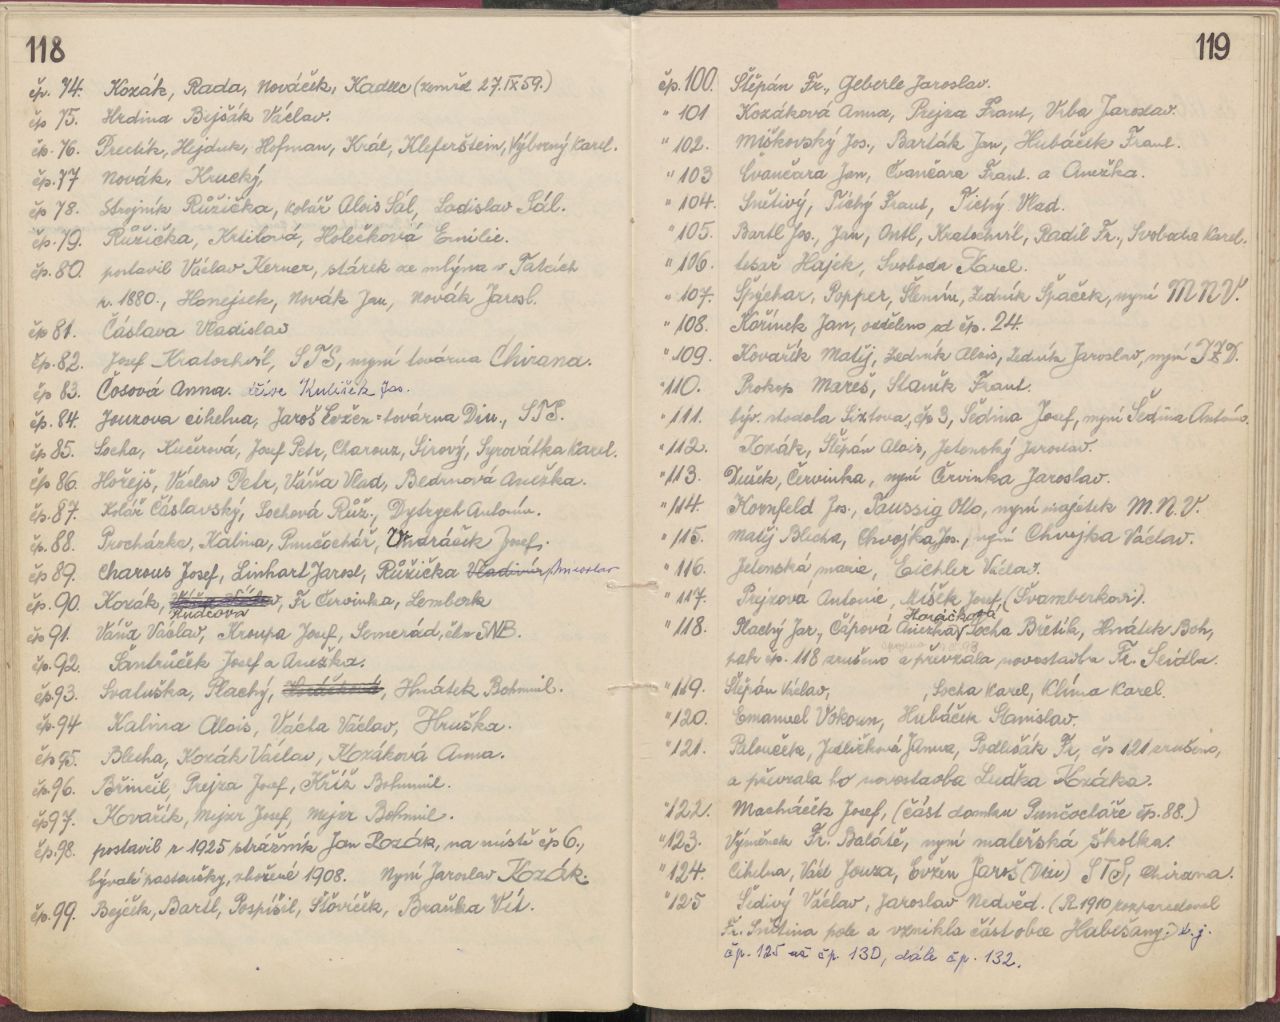 118
čp. 74. Kozák, Rada, Nováček, Kadlec (zemřel 27.IX 59.)
čp 75. Hrdina Bejšák Václav.
čp. 76. Preclík, Hejduk, Hofman, Král, Kleferštein, Výborný Karel.
čp. 77 Novák, Krucký,
čp 78. Strojník Růžička, kolář Alois Sál, Ladislav Sál.
čp. 79. Růžička, Krtilová, Holečková Emilie.
čp. 80. postavil Václav Kerner, stárek ze mlýna v Tatcích
r. 1880., Honejsek, Novák Jan, Novák Jarosl.
čp 81. Čáslava Vladislav
čp. 82. Josef Kratochvíl, STS, nyní továrna Chirana.
čp 83. Čosová Anna. dříve Kulíšek Jos.
čp. 84. Jouzova cihelna, Jaroš Evžen - továrna Diu., STS.
čp 85. Socha, Kučerová, Josef Petr, Charouz, Sirový, Syrovátka Karel.
čp 86. Hořejš, Václav Petr, Váňa Vlad, Bedrnová Anežka.
čp. 87. Kolář Čáslavský, Sochová Růž., Dytrych Antonín.
čp. 88. Procházka, Kalina, Punčochář, Vondráček Josef.
čp 89. Charous Josef, Linhart Jarosl, Růžička Vladimír, Miroslav
čp. 90. Kozák, Fr Červinka, Lembork
čp 91. Váňa Václav, Kroupa Josef, Semerád, čte SNB.
čp. 92. Šantrůček Josef a Anežka.
čp. 93. Svatuška, Plachý, Hnátek Bohumil.
čp. 94 Kalina Alois, Václa Václav, Hruška.
čp 95. Blecha, Kozák Václav, Kozáková Anna.
čp. 96. Břinčil, Prejza Josef, Kříž Bohumil.
čp 97. Kovařík, Mejzr Josef, Mejzr Bohumil.
čp. 98. postavil r 1925 strážník Jan Kozák, na místě čp 6.,
bývalé pastoušky, zbořené 1908. Nyní Jaroslav Kozák.
čp. 99. Bejček, Bartl, Pospíšil, Šťovíček, Braňka Vít.
119
čp. 100. Štěpán Fr., Geberle Jaroslav.
" 101 Kozáková Anna, Prejza Frant, Vrba Jaroslav.
" 102. Miškovský Jos., Barták Jan, Hubáček Frant.
" 103 Čvančara Jan, Čvančara Frant. a Anežka.
" 104. Snětivý, Tichý Frant, Tichý Vlad.
" 105. Bartl Jos., Jan, Ontl, Kratochvíl, Radil Fr., Svoboda Karel.
" 106. tesař Hájek, Svoboda Karel.
" 107. Špýchar, Popper, Šlemín, Zedník Špaček, nyní M N V.
" 108. Kořínek Jan, odděleno od čp. 24.
" 109. Kovařík Matěj, Zedník Alois, Zedník Jaroslav, nyní JZD.
" 110. Prokop Mareš, Staněk Frant.
" 111. býv. stodola Liztova, čp 3, Šedina Josef, nyní Šedina Antonín.
" 112. Kozák, Štěpán Alois, Jelenský Jaroslav.
" 113. Dušek, Červinka, nyní Červinka Jaroslav.
" 114. Kornfeld Jos., Taussig Otto, nyní majetek M.N.V.
" 115. Matěj Blecha, Chvojka Jos., nyní Chvojka Václav.
" 116. Jelenská Marie, Eichler Václav.
" 117. Prejzová Antonie, Mišek Josef, (Švamberkovi).
Horáčková
" 118. Plachý Jar., Čápová Anežka, Socha Břetík, Hnátek Boh,
pak čp. 118 zrušeno a převzala novostavba Fr. Seidla.
" 119. Štěpán Václav, , Socha Karel, Klíma Karel.
" 120. Emanuel Vokoun, Hubáček Stanislav.
" 121. Palouček, Jedličková Anna, Podlišák Fr, čp 121 zrušeno,
a převzala to novostavba Luďka Kozáka.
" 122. Macháček Josef, (část domku Punčocháře čp. 88.)
" 123. Výměnek Fr. Baláště, nyní mateřská školka.
" 124. Cihelna, Václ Jouza, Evžen Jaroš (Diu) STS, Chirana.
" 125 Šedivý Václav, Jaroslav Nedvěd. (R. 1910 rozparceloval
Fr. Snětina pole a vznikla část obce Habešany.) t. j.
čp. 125 až čp. 130, dále čp. 132.